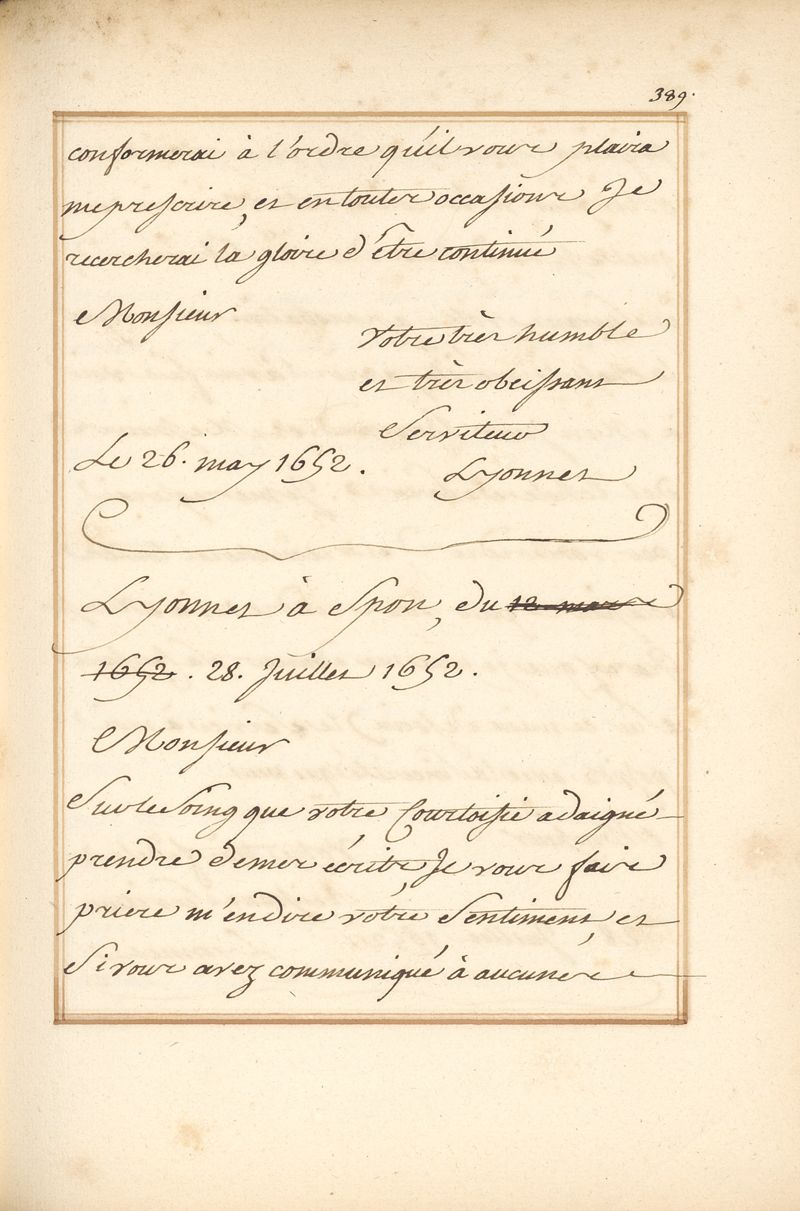 389.
conformerai à l'ordre qu'il vous plaira
me prescrire, et en toutes occasions Je
recercherai la gloire d'être continué
Monsieur
Votre très humble
et très obeissant
Serviteur
Le 26. may 1652.
Lyonnet
Lyonnet à Spon, du 12 mars
1652. 28. Juillet 1652.
Monsieur
Sur le Soing que votre Courtoisie a daigné
prendre de mes écrits, Je vous fais
priere m'en dire votre Sentiment, et
Si vous avez communiqué à aucuns